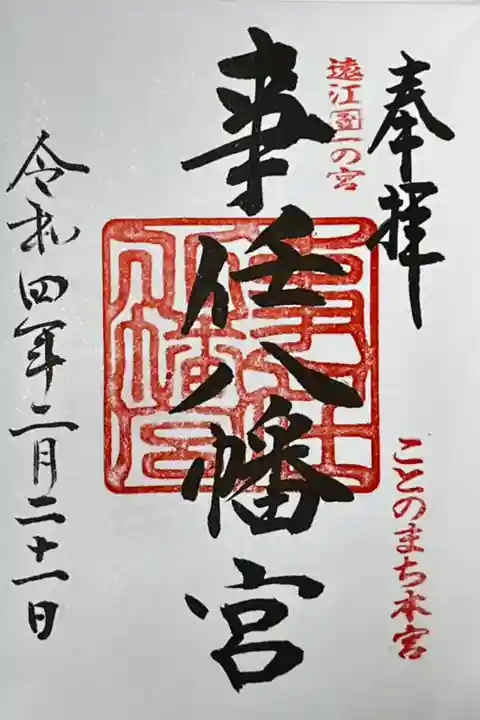 奉拝
遠江国一の宮
ことのまち本宮
事任八幡宮
事任
八幡宮
令和四年二月二十一日